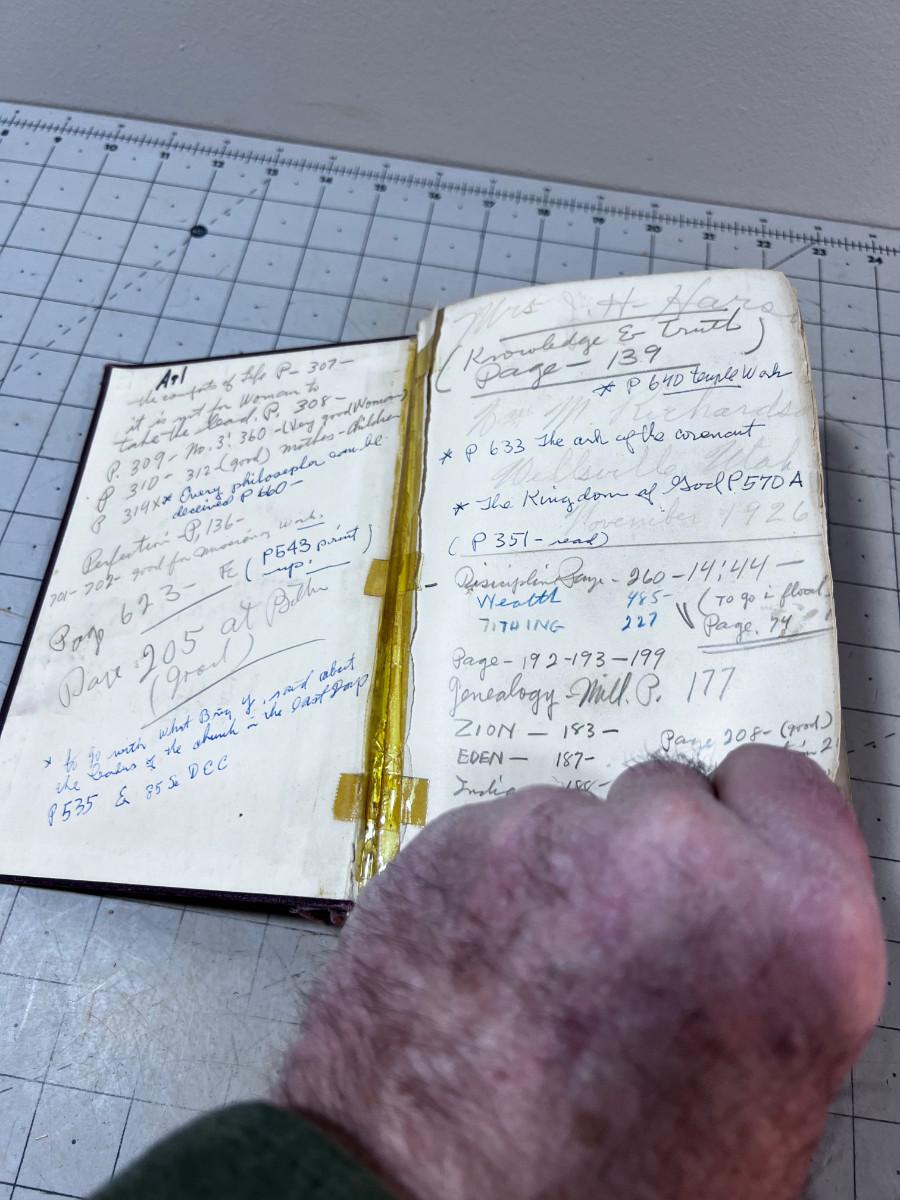 the comforts of Life P- 307-
it is not for Woman to
take the lead. P. 308-
P. 309- No. 3! 360 -(Very good Woman)
P 310- 312-(good) mothers-children
P 314X* Every philosopher can be
deceived P 660-
Perfection- P, 136-
701-702- good for missionary work.
Page 623- E (P543 print
up!)
Page 205 at Bottom
(good)
* to go with what Brig Y. said about
the leaders of the church in the last Days
P535 & 85 Se DCC
Mrs J. H- 
(Knowledge & Truth)
Page- 139
* P 640 temple Work
Wm M Richardson
* P 633 The ark of the covenant
Wellsville Utah
* The Kingdom of God P570A
November 1926
(P351-read)
Discipline Page- 260-14!44-
Wealth 485- (To go i float
TITHING 227 Page. 74
Page-192-193-199
Genealogy- Mill. P. 177
ZION - 183-
Page 208-(good)
EDEN- 187-
India 188-
8 9 10 11 12 13 14 15 16 17 18 19 20 21 22 23 24